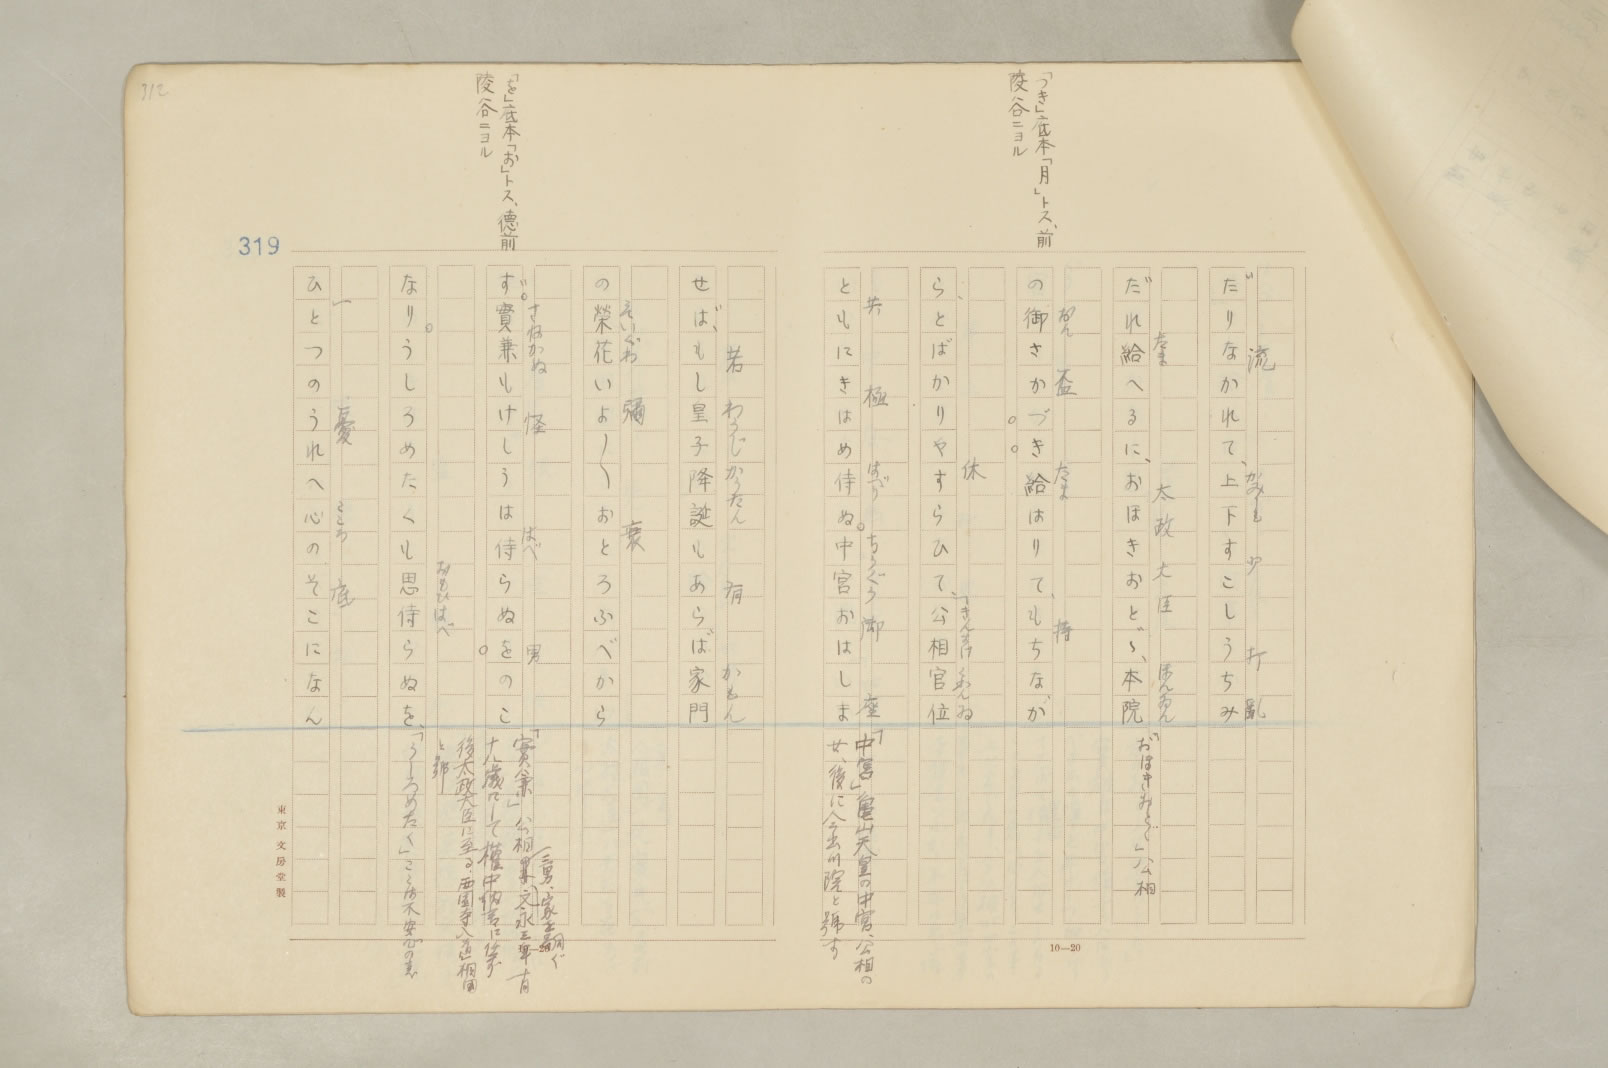 「つき」底本「月」トス、前
陵谷ニヨル
だりなかれて、上下すこしうちみ
流 かみしも 少 打 亂
だれ給へるに、おほきおとゞ、本院
たま 太政大臣 ほんゐん
「おほきおとゞ」公相
の御さかづき給はりて、もちなが
おん 盃 たま 持
ら、とばかりやすらひて、公相官位
休 「きんすけ くわんゐ
ともにきはめ侍ぬ。中宮おはしま
共 極 はべり ちうぐう 御座
「中宮」亀山天皇の中宮、公相の
女、後に今出川院と號す
「を」底本「お」トス、德前
陵谷ニヨル
せば、もし皇子降誕もあらば家門
若 わうじ かうたん 有 かもん
の榮花いよ〳〵おとろふべから
えいぐわ 彌 衰
ず。實兼もけしうは侍らぬをのこ
さねかぬ 怪 はべ 男
「實兼」公相
三男、家を嗣ぐ
文永三年十月
十八歳にして權中納言に任ず
後太政大臣に至る、西園寺入道相國
と號
なり。うしろめたくも思侍らぬを、
おもひはべ
「うしろめたく」こゝは不安心の意
ひとつのうれへ心のそこになん
一 憂 こころ 底
312
319
10—20
東京 文房堂製